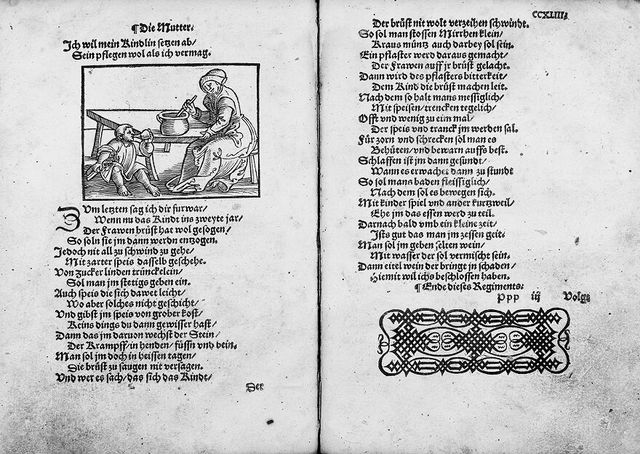 ¶ Die Mutter/
Ich wil mein Kindlin setzen ab/
Sein pflegen wol als ich vermag.
ZUm letzten sag ich dir furwar/
Wenn nu das Kindt ins zweyte jar/
Der Frawen brüst hat wol gesogen/
So soln sie jm dann werdn entzogen.
Jedoch nit all zu schwind zu gehe/
Mit zarter speis dasselb geschehe.
Von zucker linden trünckelein/
Sol man jm stetigs geben ein.
Auch speis die sich dawet leicht/
Wo aber solches nicht geschicht/
Und gibst jm speis von grober kost/
Keins dings du dann gewisser hast/
Dann das jm daruon wechst der Stein/
Der Krampff/in henden/füssn vnd bein.
Man sol jm doch in heissen tagen/
Die brüst zu saugen nit versagen.
Vnd wer es sach/das sich das Kindt/
Der
CCXLIIII.
Der brüst nit wolt verzeihen schwindt.
So sol man stossen Mirrhen klein/
Kraus müntz auch darbey sol sein.
Ein pflaster werd daraus gemacht/
Der Frawen auff jr brüst gelacht.
Dann wird des pflasters bitterkeit/
Dem Kind die brüst machen leit.
Nach dem so halt mans messiglich/
Mit speisen/trencken tegelich/
Offt vnd wenig zu eim mal/
Der speis vnd tranck jm werden sal.
Für zorn vnd schrecken sol man es
Behüten/vnd bewarn auffs best.
Schlaffen ist jm dann gesundt/
Wann es erwachet dann zu stundt
So sol mans baden fleissiglich/
Nach dem sol es bewegen sich.
Mit kinder spiel vnd ander kurtzweil/
Ehe jm das essen werd zu teil.
Darnach bald vmb ein kleine zeit/
Ists gut das man jm zessen geit.
Man sol jm geben selten wein/
Mit wasser der sol vermischt sein.
Dann eitel wein der bringt jn schaden/
Hiemit wil ichs beschlossen haben.
¶ Ende dieses Regiments.
Ppp iij Volgt